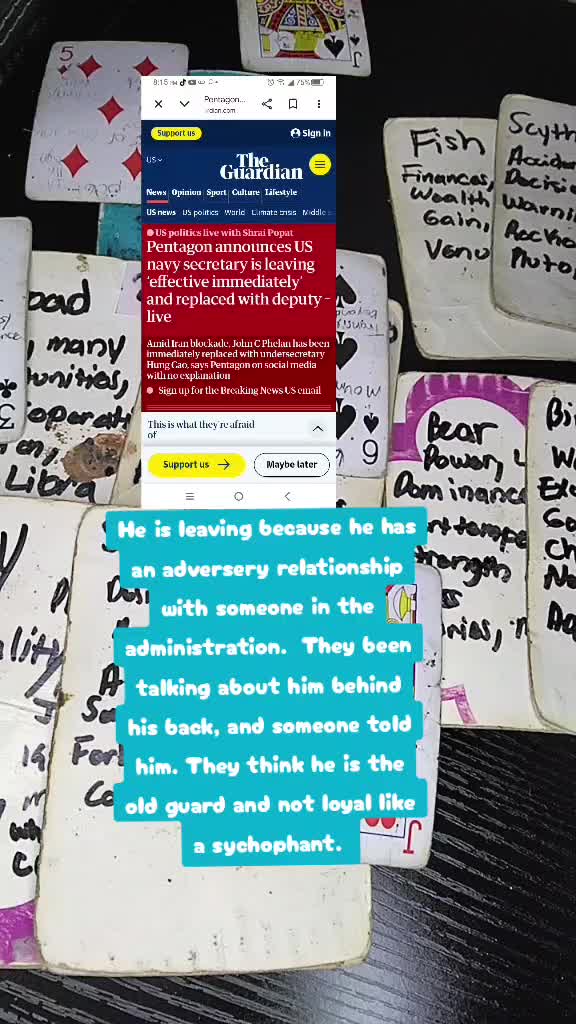 5
J
8:15 PM
75%
Pentagon...
Support us
Sign in
US
The
Guardian
News Opinion Sport Culture Lifestyle
US news US politics World Climate crisis Middle
US politics live with Shrai Popat
Pentagon announces US
navy secretary is leaving
‘effective immediately’
and replaced with deputy –
live
Amid Iran blockade, John C Phelan has been
immediately replaced with undersecretary
Hung Cao, says Pentagon on social media
with no explanation
Sign up for the Breaking News US email
This is what they're afraid
of
Support us → Maybe later
Fish
Finances,
Wealth
Gain,
Venu
Scyth
Accide
Decisio
Warnin
Pluto,
oad
many
tunities,
operati
Libra
3
6
Bear
Power,
Dominance
trength
He is leaving because he has
an adversery relationship
with someone in the
administration. They been
talking about him behind
his back, and someone told
him. They think he is the
old guard and not loyal like
a sychophant.
ality
For
Co
J